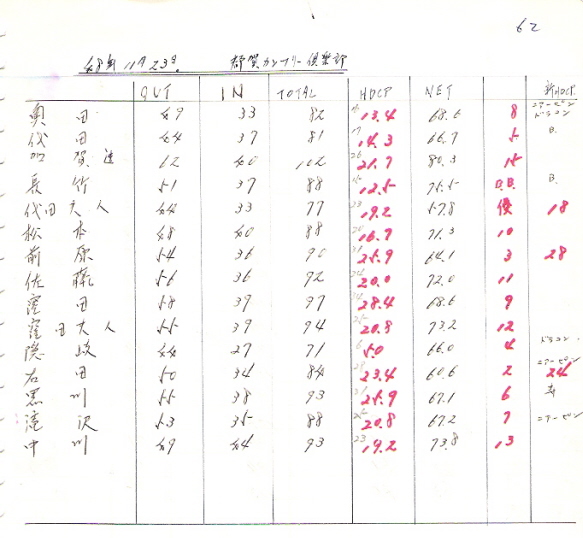 62
48年 11月23日. 都賀カンツリー倶楽部
OUT IN TOTAL HDCP NET 新HDCP.
奥田 49 33 82 13.4 68.6 8 ニアーピン
ドラコン
代田 44 37 81 14.3 66.7 5 B.
加賀 62 40 102 21.7 80.3 15
長竹 51 37 88 12.5 75.5 B.B. B.
代田夫人 44 33 77 19.2 57.8 優 18
松本 48 40 88 16.7 71.3 10
前原 54 36 90 25.9 64.1 3 28
佐藤 56 36 92 20.0 72.0 11
窪田 58 39 97 28.4 68.6 9
窪田夫人 55 39 94 20.8 73.2 12
隠岐 44 27 71 5.0 66.0 4 ドラコン.
ニアーピン
右田 50 34 84 23.4 60.6 2 24
黒川 55 38 93 25.9 67.1 6
滝沢 53 35 88 20.8 67.2 7 ニアーピン
中川 49 44 93 19.2 73.8 13